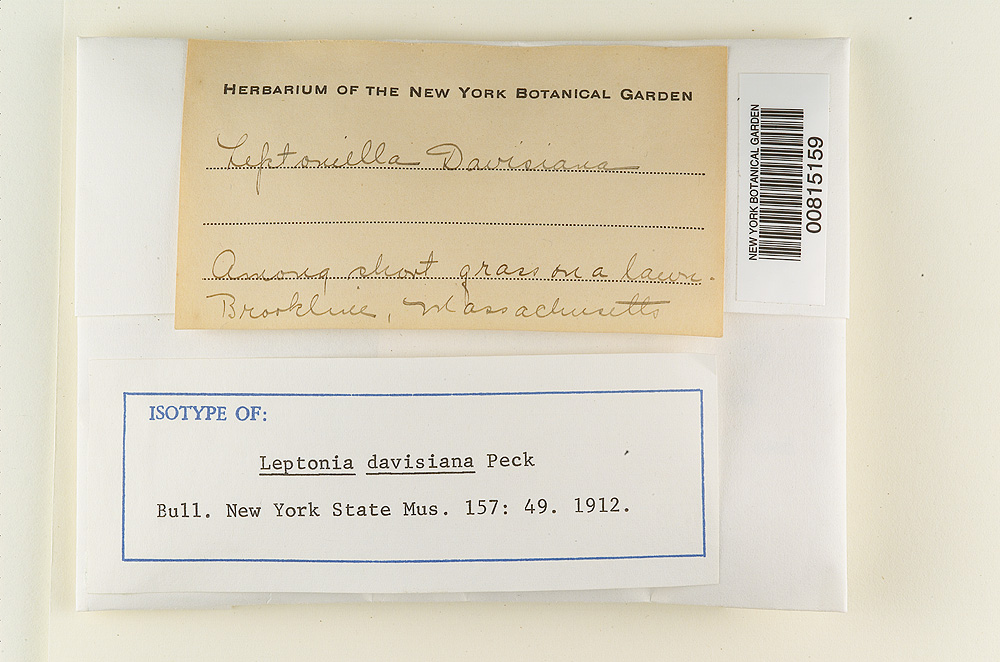 HERBARIUM OF THE NEW YORK BOTANICAL GARDEN
Leptoniella Davisiana
Among short grass on a lawn.
Brookline, Massachusetts
NEW YORK BOTANICAL GARDEN
00815159
ISOTYPE OF:
Leptonia davisiana Peck
Bull. New York State Mus. 157: 49. 1912.